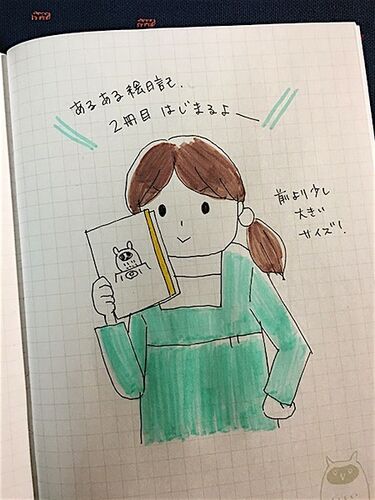 あるある絵日記、
2冊目はじまるよー
前より少し
大きい
サイズ!